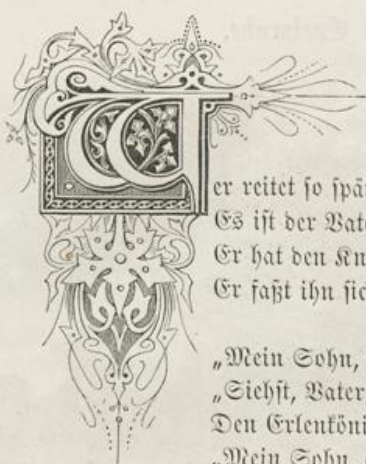 Wer reitet so spä
Es ist der Vat
Er hat den Kn
Er faßt ihn sic
„Mein Sohn,
„Siehst, Vater
Den Erlenköni
„Mein Sohn,